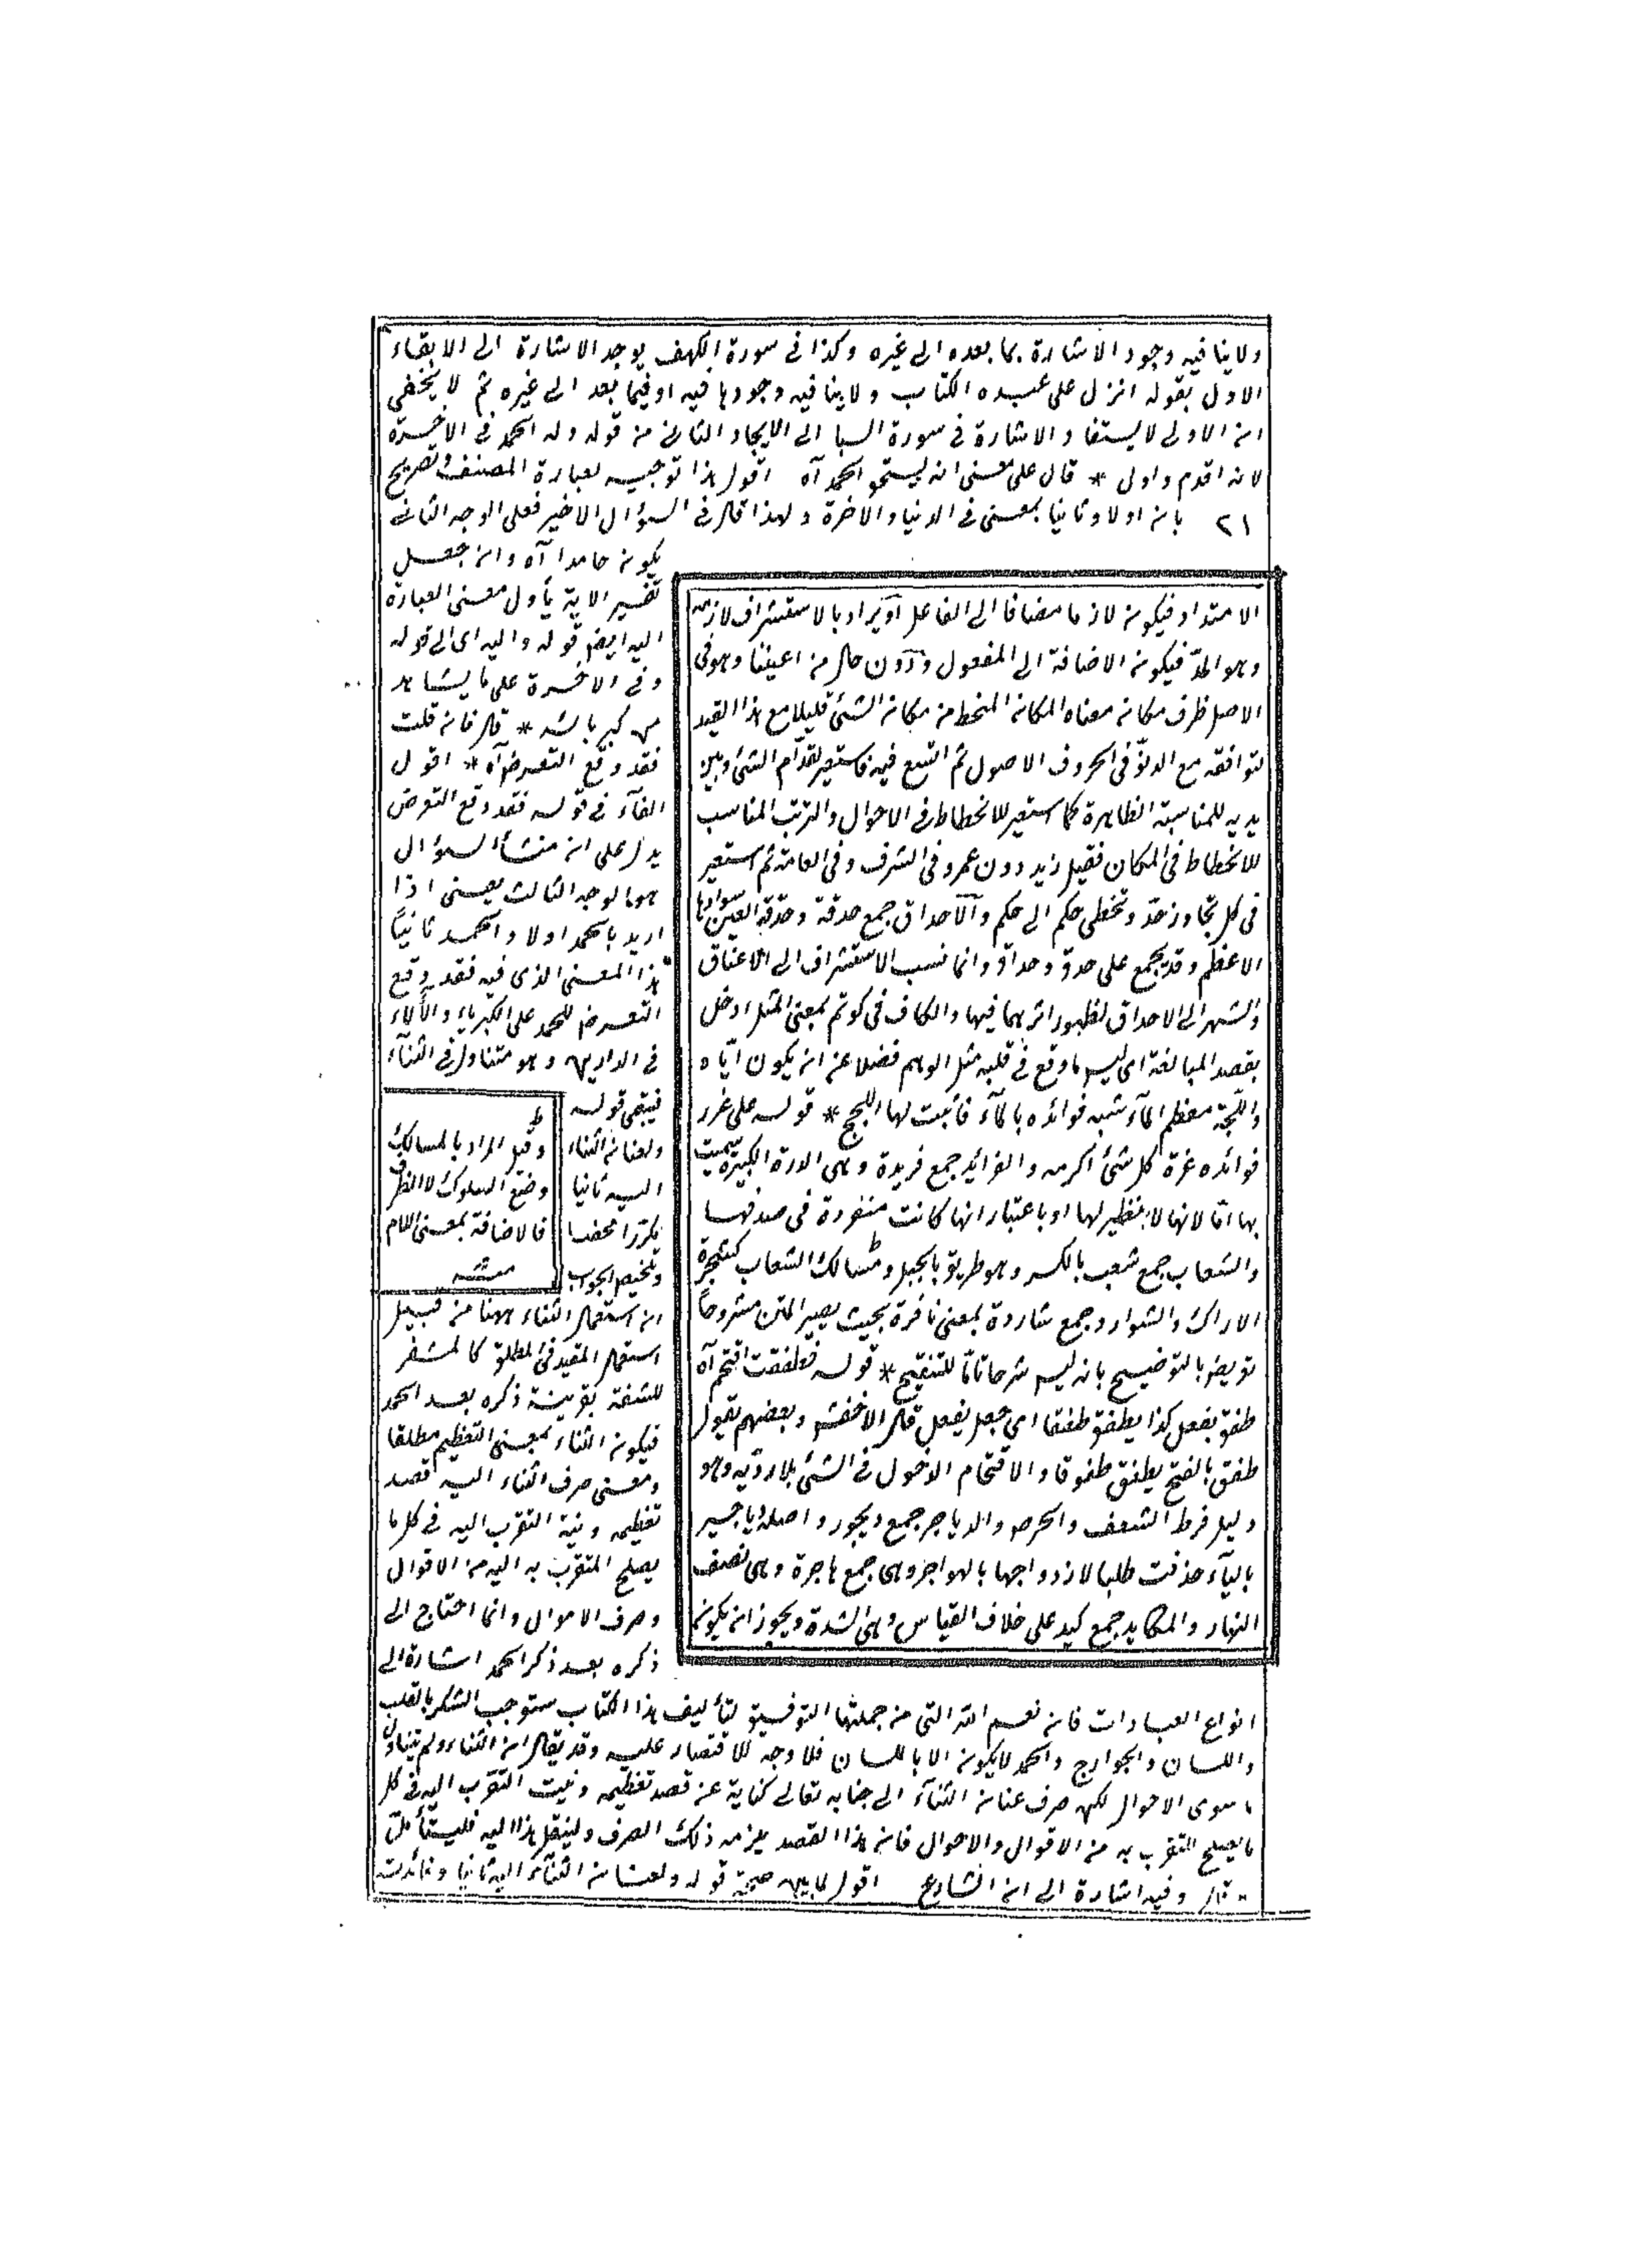 ولا ينافيه وجود الاشارة بما بعده الى غيره وكذا فى سورة الكهف يوجد الاشارة الى الابقاء
الاول بقوله انزل على عبده الكتاب ولا ينافيه وجودها فيه او فيما بعد الى غيره ثم لا يخفى
ان الاولى لا يستفاد الاشارة فى سورة السبا الى الايجاد الثانى من قوله وله الحمد فى الاخرة
لانه اقدم واولى * قال على معنى انه يستحق الحمد آه اقول هذا توجيه لعبارة المصنف وتصريح
٢١ بان اولا وثانيا بمعنى فى الدنيا والاخرة ولهذا قال فى السؤال الاخير فعلى الوجه الثانى
يكون حامدا آه وان جعل
تفسير الاية يأول معنى العبارة
اليه ايضا قوله واليه اى الى قوله
وفى الاخرة على ما يشاهد
من كبريائه * قال فان قلت
فقد وقع التعرض آه * اقول
الفاء فى قوله فقد وقع التعرض
يدل على ان منشأ السؤال
هو الوجه الثالث يعنى اذا
اريد بالحمد اولا والحمد ثانيا
هذا المعنى الذى فيه فقد وقع
التعرض للحمد على الكبرياء والآلاء
فى الدارين وهو متناول فى الثناء
فيبقى قوله
ولعنان الثناء
اليه ثانيا
مكررا محضا
وتلخيص الجواب
ان استعمال الثناء ههنا من قبيل
استعمال المقيد فى المطلق كالمشفر
للشفة بقرينة ذكره بعد الحمد
فيكون الثناء بمعنى التعظيم مطلقا
ومعنى صرف الثناء اليه قصد
تعظيمه ونية التقرب اليه فى كل ما
يصلح المتقرب به اليه من الاقوال
وصرف الاموال وانما احتاج الى
ذكره بعد ذكر الحمد اشارة الى
انواع العبادات فان نعم الله التى من جملتها التوفيق لتأليف هذا الكتاب ستوجب الشكر بالقلب
واللسان والجوارح والحمد لا يكون الا باللسان فلا وجه للاقتصار عليه وقد يقال ان الثناء ولم يتناول
ما سوى الاحوال لكن صرف عنان الثناء الى جنابه تعالى كناية عن قصد تعظيمه ونيت التقرب اليه فى كل
ما يصلح التقرب به من الاقوال والاحوال فان هذا القصد يلزمه ذلك الصرف ولينقل هذا اليه فليتأمل
قال وفيه اشارة الى ان الشارع اقول لما بين صحة قوله ولعنان الثناء اليه ثانيا وفائدته
وقيل المراد بالمسالك
وضع السلوك لا الطرق
فالاضافة بمعنى اللام
منه
الامتداد فيكون لازما مضافا الى الفاعل او يراد بالاستشراف لازمه
وهو المدّ فيكون الاضافة الى المفعول ودون حال من اعيننا وهو فى
الاصل ظرف مكان معناه المكان المنحط من مكان الشئ قليلا مع هذا القيد
لتوافقه مع الدنوّ فى الحروف الاصول ثم اتسع فيه فاستعير لقدّام الشئ وبين
يديه للمناسبة الظاهرة كما استعير للانحطاط فى الاحوال والترتب المناسب
للانحطاط فى المكان فقيل زيد دون عمرو فى الشرف وفى العامة ثم استعير
فى كل تجاوز حدّ وتخطى حكم الى حكم والاحداق جمع حدقة وحدقة العين سوادها
الاعظم وقد يجمع على حدق وحداق وانما نسب الاستشراف الى الاعناق
والسهر الى الاحداق لظهور اثرهما فيها والكاف فى كوثم بمعنى المثل ادخل
بقصد المبالغة اى ليس ما وقع فى قلبه مثل الوهم فضلا عن ان يكون ايّاه
واللّجة معظم الماء شبه فوائده بالماء فأثبت لها اللجج * قوله على غرر
فوائده غرة كل شئ اكرمه والفرائد جمع فريدة وهى الدرة الكبيرة سميت
بها امّا لانها لا نظير لها او باعتبار انها كانت منفردة فى صدفها
والشعاب جمع شعب بالكسر وهو طريق بالجبل ومسالك الشعاب كشجرة
الاراك والشوارد جمع شاردة بمعنى نافرة بحيث يصير المتن مشروحا
تعريض بالتوضيح بانه ليس شرحا تامّا للتنقيح * قوله فطفقت اقتحم آه
طفق يفعل كذا يطفق طفقا اى جعل يفعل قال الاخفش وبعضهم يقول
طفق بالفتح يطفق طفوقا والاقتحام الدخول فى الشئ بلا رويّة وهو
دليل فرط الشعف والحرص والدياجر جمع ديجور واصله دياجير
بالياء حذفت طلبا لازدواجها بالهواجر وهى جمع هاجرة وهى نصف
النهار والمكايد جمع كيد على خلاف القياس وهى الشدة ويجوز ان يكون